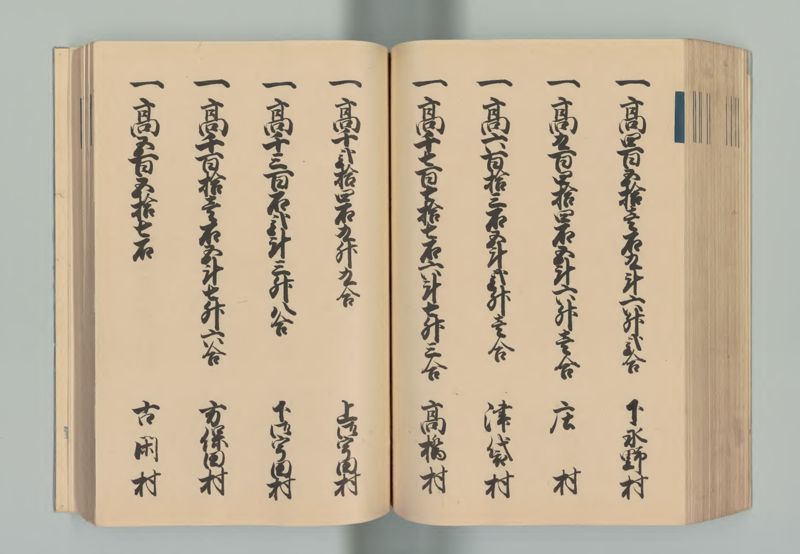 一高四百五拾壱石九斗六升弐合 下永野村
一高九百四拾四石五斗六升壱合 庄村
一高六百拾三石五斗弐升壱合 津袋村
一高千七百七拾七石六斗七升三合 高橋村
一高千弐拾四石九升九合 上御宇田村
一高千三百石弐斗三升八合 下御宇田村
一高千百拾壱石五斗七升六合 方保田村
一高五百五拾七石 古閑村